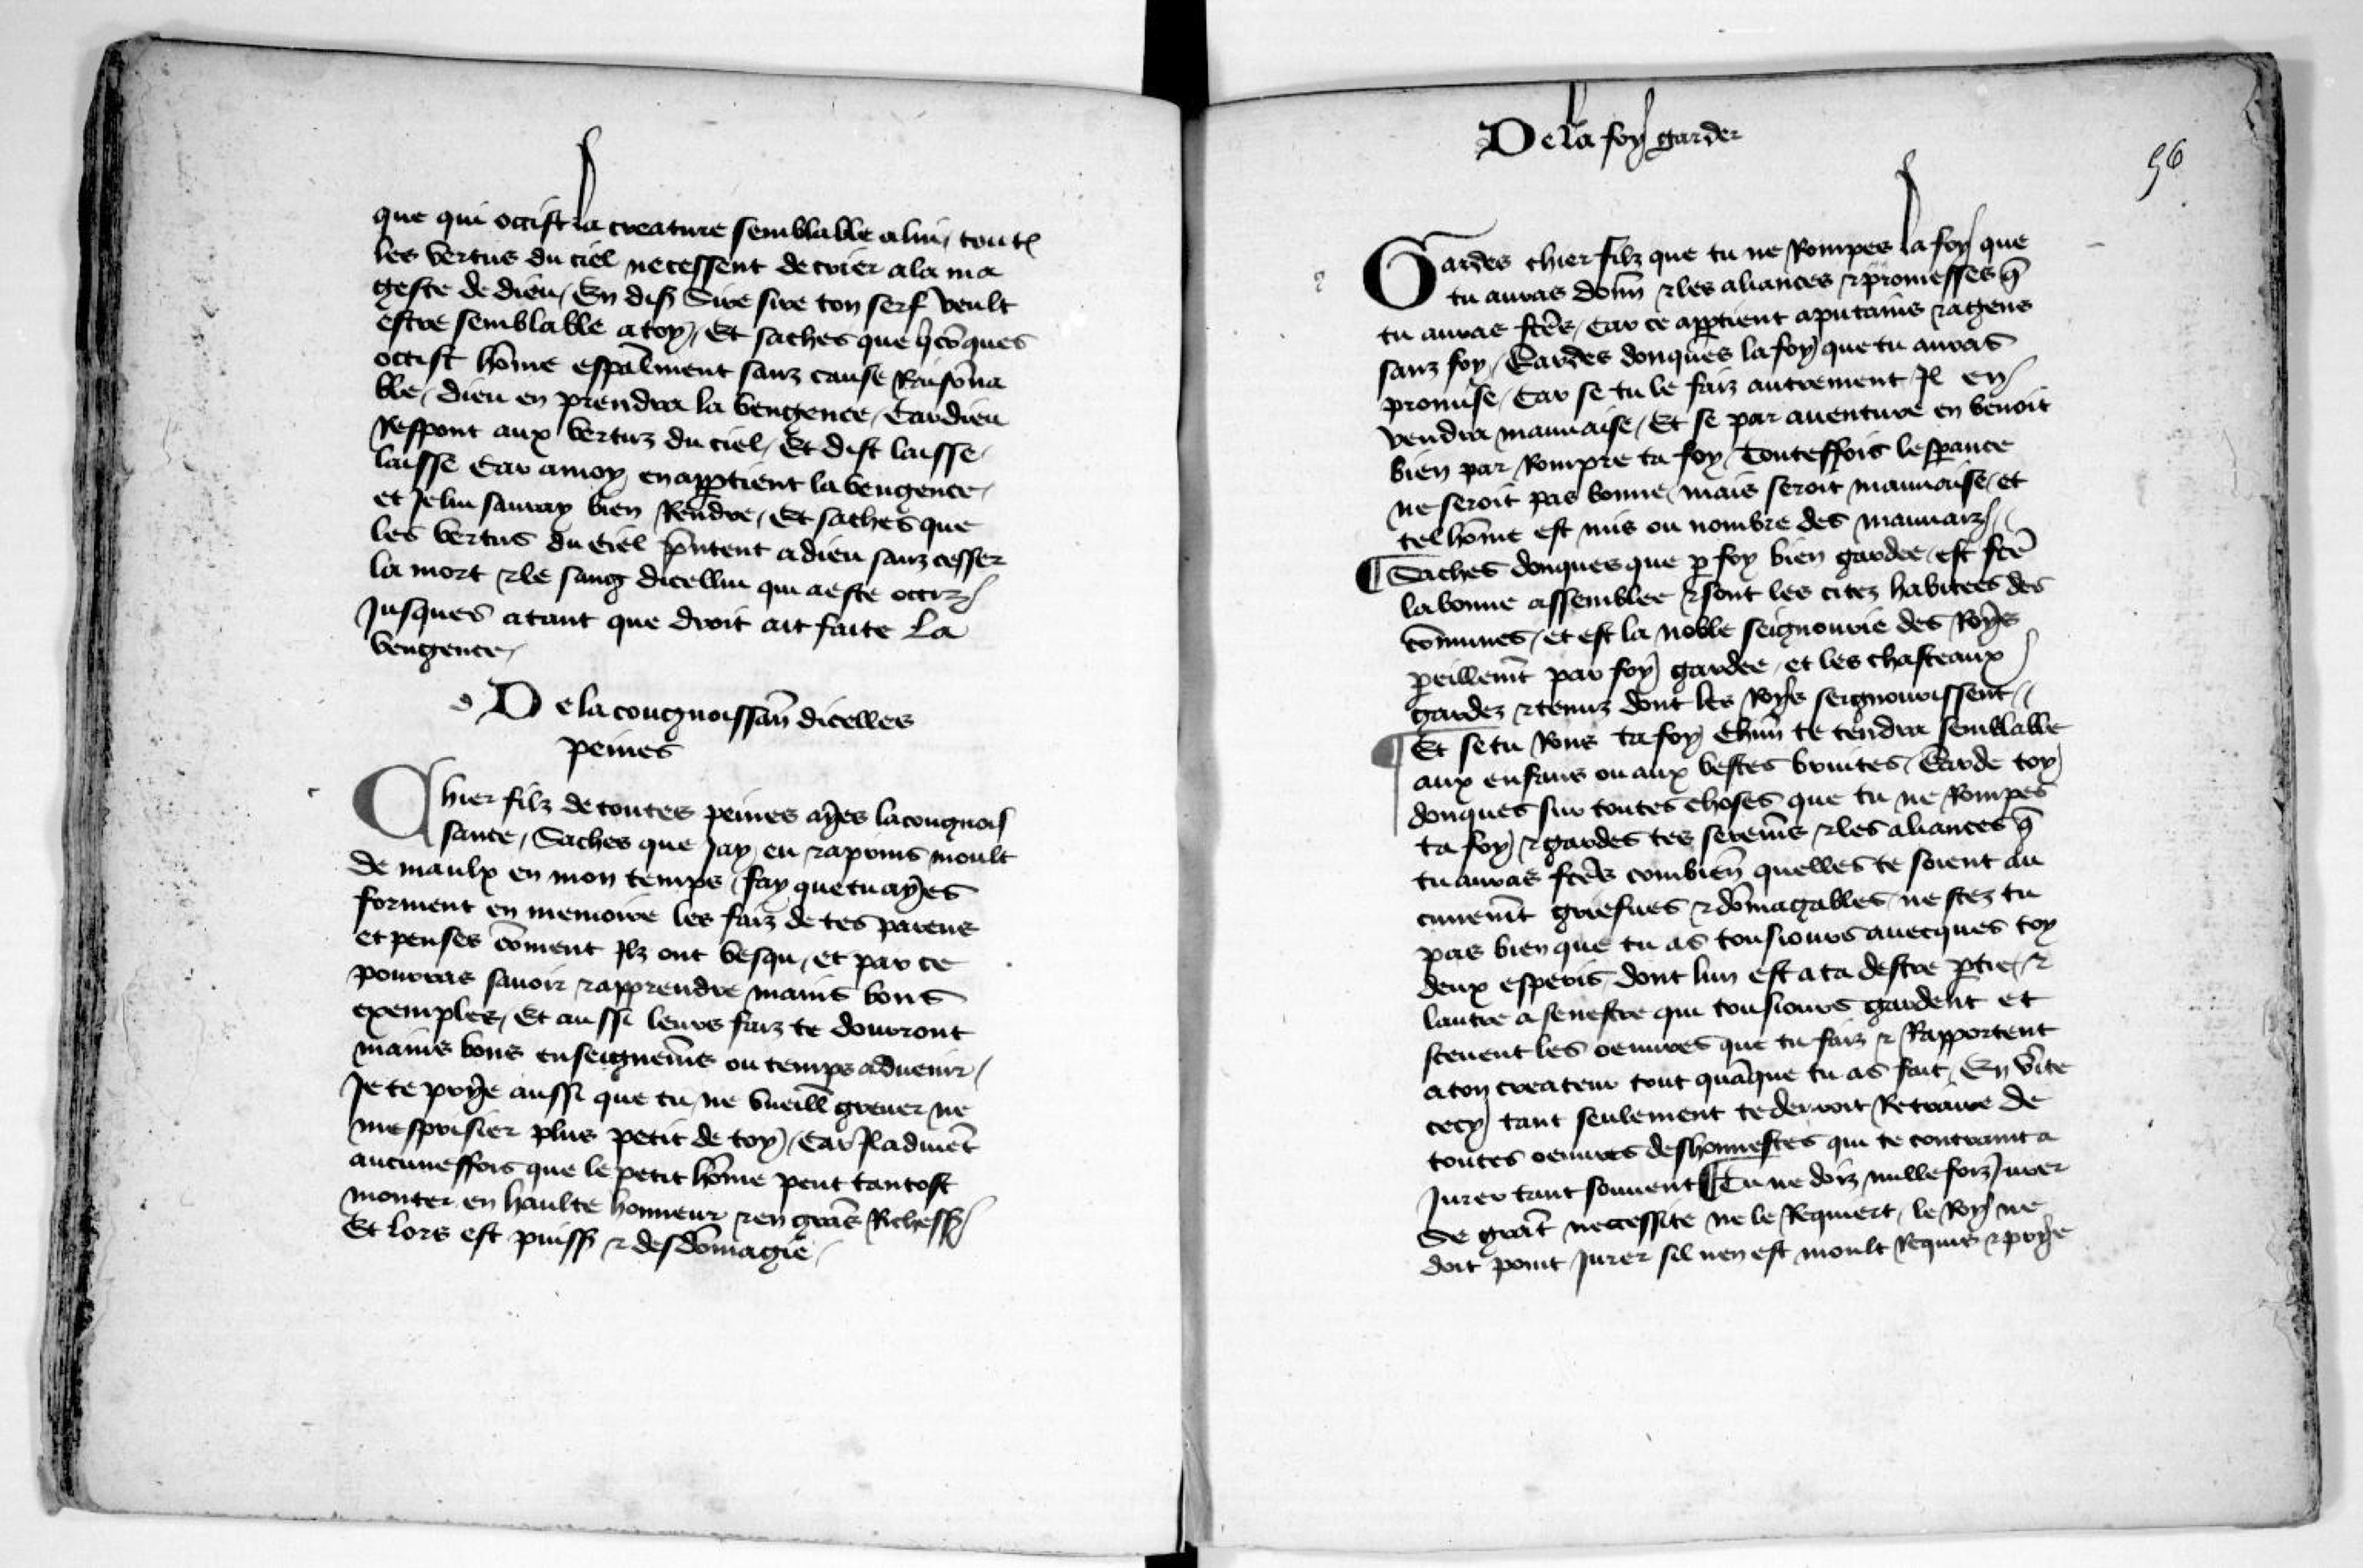 que qui occist la creature semblable a lui / toutes
les vertus du ciel ne cessent de crier a la ma
geste de dieu / En dis Sire sire ton serf veult
estre semblable a toy / Et saches que qicōques
occist hōme espālment sanz cause Raisōna
ble / dieu en prendra la vengence / Car dieu
Respont aux vertuz du ciel / Et dist laisse /
laisse Car a moy en apptient la vengence /
et Je lui sauray bien Rendre / Et saches que
les vertus du ciel p̄ntent a dieu sanz cesser
la mort & le sang dicellui qui a este occiz /
Jusques a tant que droit ait faite La
vengence /
De la congnoissan̄ dicelles
peines
Chier filz de toutes peines ayes la congnois
sance / Saches que Jay eu & aprins moult
de maulx en mon temps / fay que tu ayes
forment en memoire les faiz de tes parens
et penses cōment Ilz ont vesqu / et par ce
pourras savoir & apprendre mains bons
exemples / Et aussi leurs faiz te donront
mains bons enseignem̄s ou temps advenir /
Je te prye aussi que tu ne vueill̄ grever ne
mesprisier plus petit de toy / Car Il advient̄
aucuneffois que le petit hōme peut tantost
monter en haulte honneur & en grās Richess /
Et lors est puiss & desdōmagie /
De la foy garder
56
Gardes chier filz que tu ne Rompes la foy que
tu auras donn̄ & les aliances & promesses q̄
tu auras fc̄es / Car ce apptient a putains & a gens
sanz foy / Gardes donques la foy que tu auras
promise / Car se tu le faiz autrement Il en
vendra mauvaise / Et se par aventure en venoit
bien par Rompre ta foy / Touteffois lespance
ne seroit pas bonne / mais seroit mauvaise / et
tel hōme est mis ou nombre des mauvaiz /
¶ Saches donques que p foy bien gardee / est fc̄e
la bonne assemblee & sont les citez habitees des
cōmunes / et est la noble seignourie des Roys
peillem̄t par foy gardee / et les chasteaux
gardez & tenuz dont les Roys seignourissent /
¶ Et se tu Rons ta foy Chūn te tendra semblable
aux enfans ou aux bestes brutes / Garde toy
donques sur toutes choses que tu ne Rompes
ta foy & gardes tes serem̄s & les aliances q̄
tu auras fc̄es combien̄ quelles te soient au
cunem̄t griefues & dōmagables / ne scez tu
pas bien que tu as tousiours avecques toy
deux esperis / dont lun est a ta destre ptie / &
lautre a senestre qui tousiours gardent et
scevent les oeuvres que tu faiz & Rapportent
a ton createur tout quāque tu as fait / En vīte
cecy tant seulement te devroit Retraire de
toutes oeuvres deshonnestes qui te contraint a
Jurer tant souvent ¶ Tu ne doiz nulle foiz Jurer
Se grāt necessite ne le Requiert / le Roy ne
doit point Jurer sil nen est moult Requis & prye